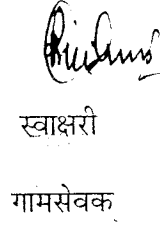 स्वाक्षरी
गामसेवक